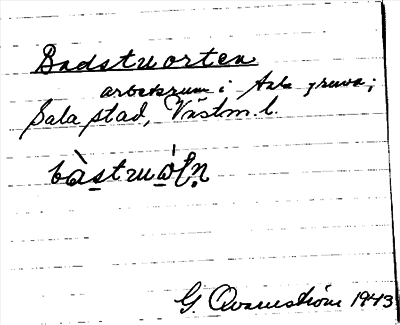 Badstuorten
arbetsrum i Sala gruva;
Sala stad, Västm. l.
bàstuẃₒṇ
G. Qvarnström 1943